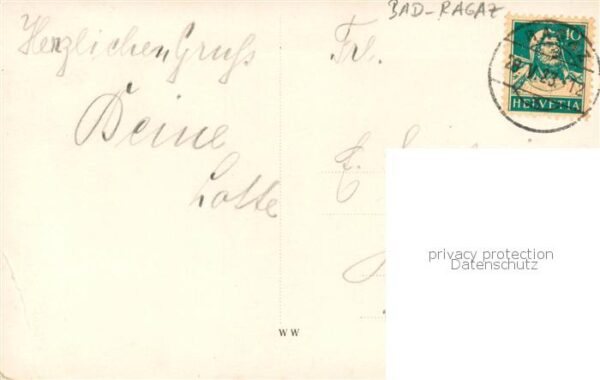 Herzlichen Gruß
Deine
Lotte
BAD-RAGAZ
Frl.
E.
10
HELVETIA
privacy protection
Datenschutz
WW